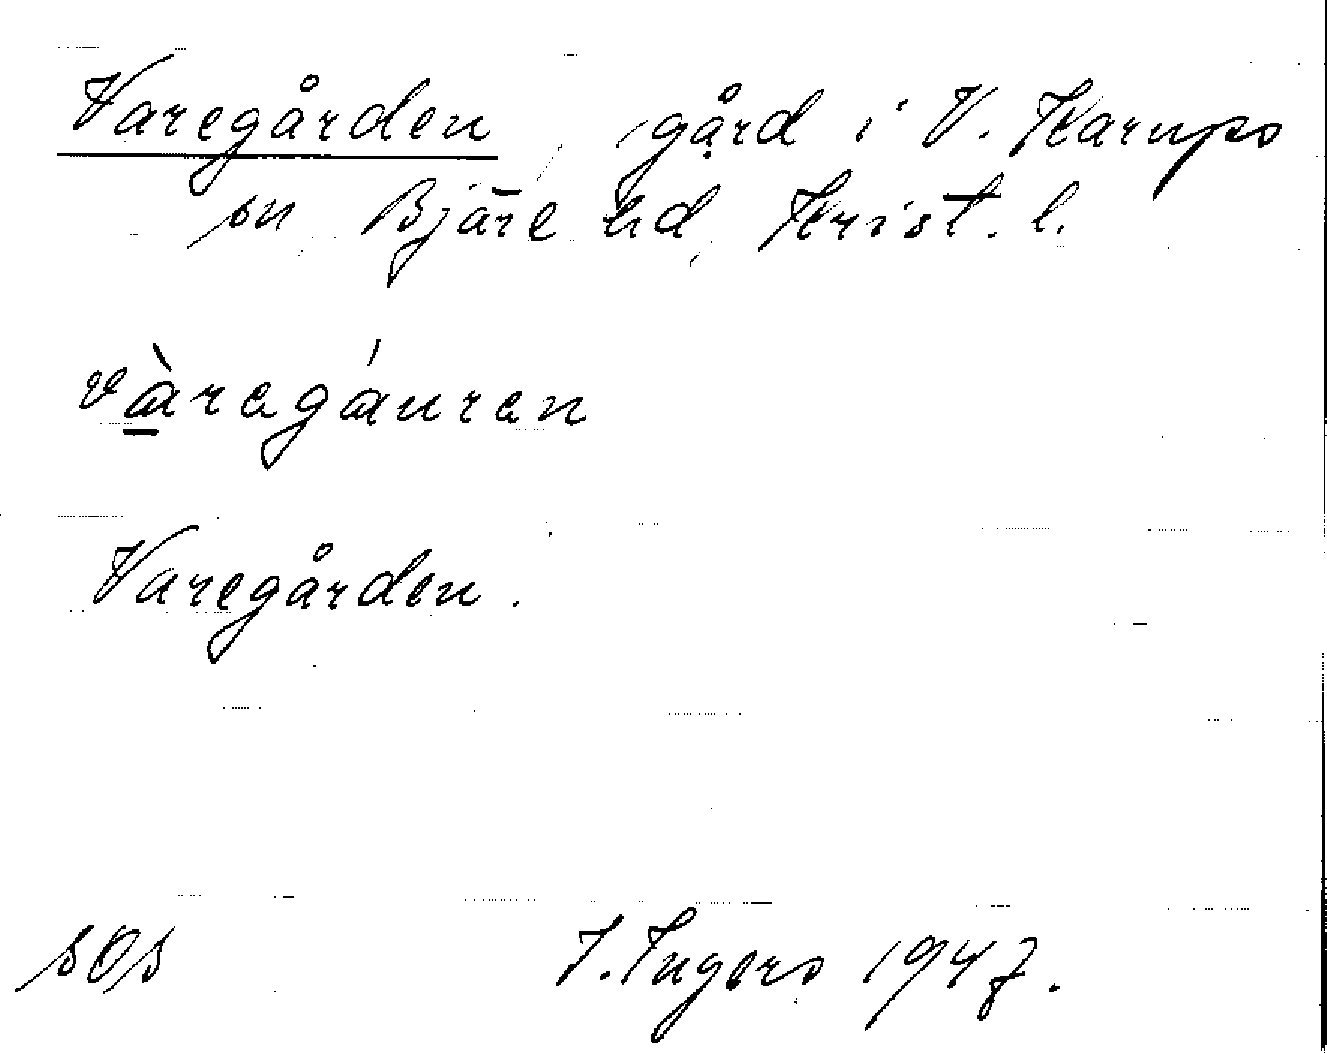 Varegården, gård i V. Karups
sn Bjäre hd, Krist. l.
vàregáuren
Varegården.
sOs I. Ingers 1947.